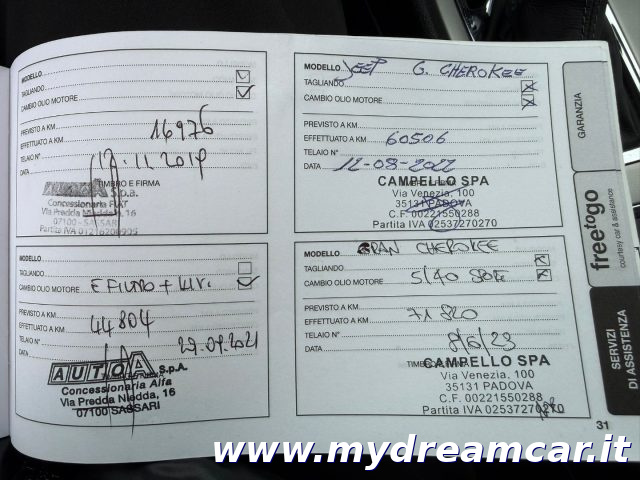 MODELLO
TAGLIANDO
CAMBIO OLIO MOTORE
PREVISTO A KM
EFFETTUATO A KM 16976
TELAIO N°
DATA 12.11.2019
TIMBRO E FIRMA
S.p.a.
Concessionaria FIAT
Via Predda Niedda, 16
07100 - SASSARI
Partita IVA 01216200905
MODELLO
TAGLIANDO
CAMBIO OLIO MOTORE E FILTRO + LIV.
PREVISTO A KM
EFFETTUATO A KM 44804
TELAIO N°
DATA 29.09.2021
AUTOA S.p.A.
Concessionaria Alfa
Via Predda Niedda, 16
07100 SASSARI
MODELLO JEEP G. CHEROKEE
TAGLIANDO
CAMBIO OLIO MOTORE
PREVISTO A KM
EFFETTUATO A KM 60506
TELAIO N°
DATA 12-08-2022
CAMPELLO SPA
Via Venezia, 100
35131 PADOVA
C.F. 00221550288
Partita IVA 02537270270
MODELLO GRAN CHEROKEE
TAGLIANDO
CAMBIO OLIO MOTORE 5/40
PREVISTO A KM
EFFETTUATO A KM 71820
TELAIO N°
DATA 8/6/23
CAMPELLO SPA
Via Venezia, 100
35131 PADOVA
C.F. 00221550288
Partita IVA 02537270270
GARANZIA
freetogo
courtesy car & assistance
SERVIZI
DI ASSISTENZA
31
www.mydreamcar.it